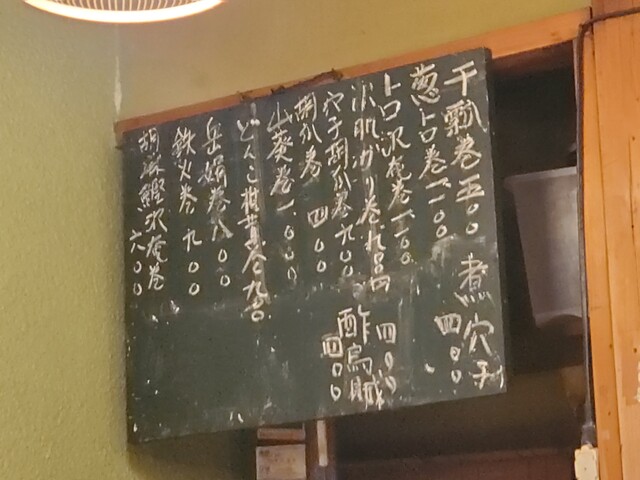 干瓢巻五〇〇
葱トロ巻一一〇〇
トロ沢庵巻一一〇〇
氷肌ガリ巻九〇〇円
穴子胡瓜巻九〇〇
胡瓜巻四〇〇
山葵巻一〇〇〇
どんこ椎茸巻九〇〇
鉄火巻九〇〇
胡麻鰹沢庵巻六〇〇
煮穴子
四〇〇
四〇〇
酢烏賊
四〇〇